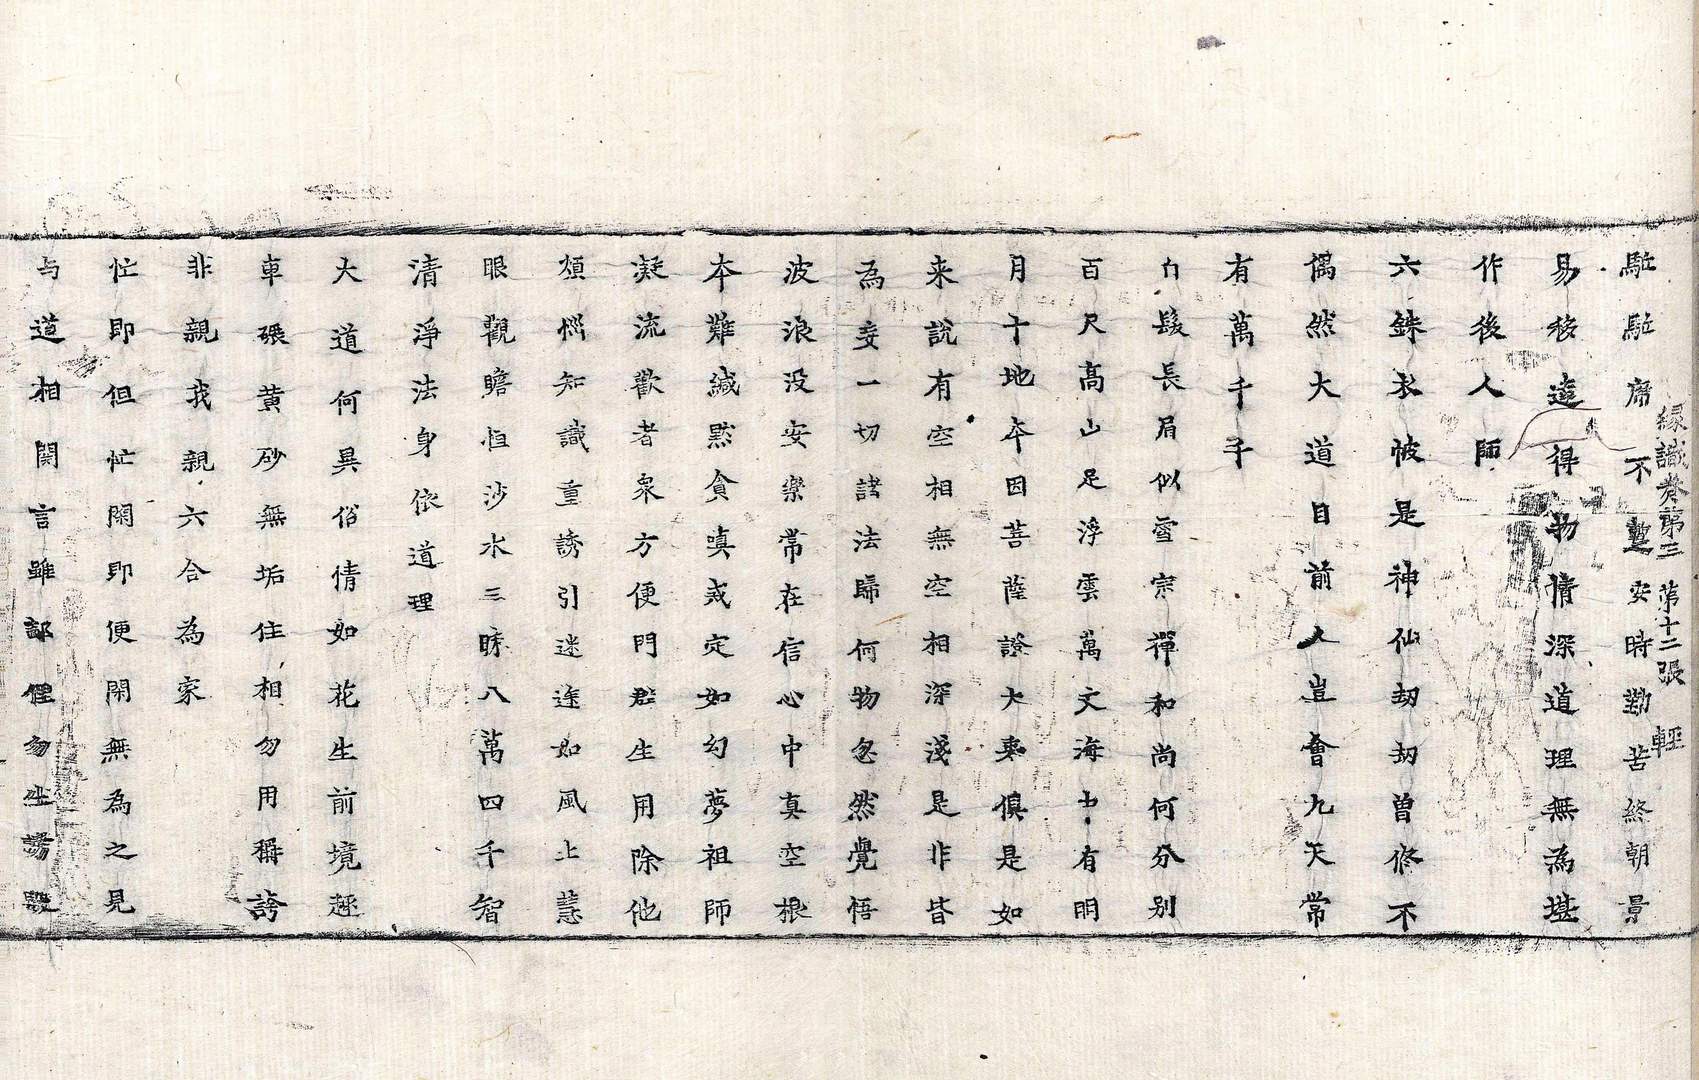 緣識卷第三 第十二張 輕
駈駈席不蹔安時勤苦終朝景
易移遠得物情深道理無為堪
作後人師
六銖衣帔是神仙劫劫曽修不
偶然大道目前人豈會九天常
有萬千千
白髮長眉似雪宗禪和尚何分別
百尺高山足浮雲萬文海中有明
月十地夲因菩薩證大乗俱是如
来說有空相無空相深淺是非皆
為妄一切諸法歸何物忽然覺悟
波浪没安樂常在信心中真空根
夲難緘黙貪嗔戒定如幻夢祖師
凝流歡者衆方便門群生用除他
煩惱知識重誘引迷途如風上慧
眼觀瞻恒沙水三昧八萬四千智
清淨法身依道理
大道何異俗情如花生前境趣
車碾黄砂無垢住相勿用稱誇
非親我親六合為家
忙即但忙閑即便閑無為之見
与道相関言雖鄙俚勿生謗毀